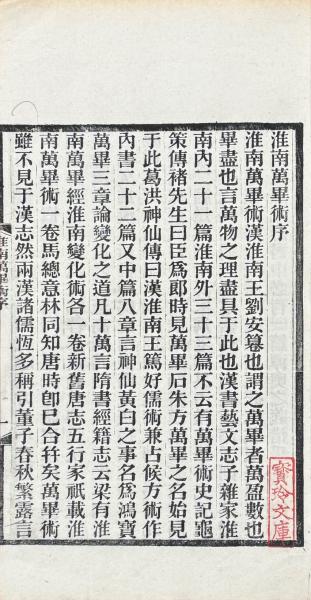 淮南萬畢術序
淮南萬畢術漢淮南王劉安簒也謂之萬畢者萬盈數也
畢盡也言萬物之理盡具于此也漢書藝文志子雜家淮
南內二十一篇淮南外三十三篇不云有萬畢術史記龜
策傳褚先生曰臣爲郎時見萬畢石朱方萬畢之名始見
于此葛洪神仙傳曰漢淮南王篤好儒術兼占候方術作
內書二十二篇又中篇八章言神仙黃白之事名爲鴻寶
萬畢三章論變化之道凡十萬言隋書經籍志云梁有淮
南萬畢經淮南變化術各一卷新舊唐志五行家祇載淮
南萬畢術一卷馬總意林同知唐時卽已合幷矣萬畢術
雖不見于漢志然兩漢諸儒恆多稱引董子春秋繁露言
淮南萬畢術序
一
寶玲文庫